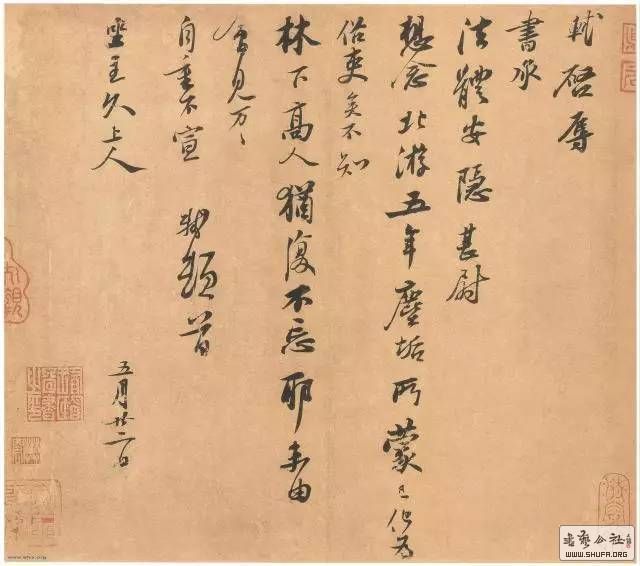 軾啓辱
書承
法體安隱甚尉
想念北游五年塵垢所蒙已化為
俗吏矣不知
林下高人猶復不忘耶未由
會見万〻
自重不宣 軾頓首
坐主久上人
五月廿二日
书艺公社
WWW.SHUFA.ORG